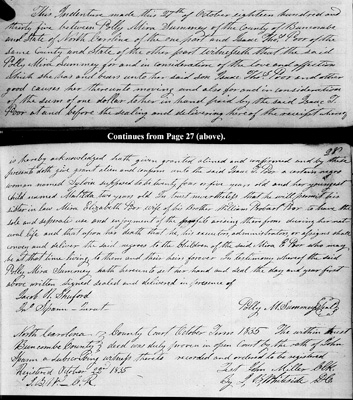 This Indenture made this 27th of October eighteen hundred and
thirty five between Polly Mira Summey of the County of Buncombe
and State of North Carolina of the one part and Isaac T. Poor of the
same County and State of the other part witnesseth that the said
Polly Mira Summey for and in consideration of the love and affection
which she has and bears unto her said son Isaac T. Poor and other
good causes her thereunto moving and also for and in consideration
of the sum of one dollar to her in hand paid by the said Isaac T.
Poor at and before the sealing and delivering here of the receipt whereof
Continues from Page 27 (above).
28
is hereby acknowledged hath given granted aliened and confirmed and by these
presents doth give grant alien and confirm unto the said Isaac T. Poor a certain negro
woman named Sylvia supposed to be twenty four or five years old and her youngest
child named Matilda two years old In trust nevertheless that he will permit his
sister in law Mira Elizabeth Poor wife of his brother William Poor to have the
sole and separate use and enjoyment of the profits arising therefrom during her nat
ural life and that upon her death that he, his executors, administrators, or assigns shall
convey and deliver the said negroes to the children of the said Mira E. Poor who may
be at that time living, to them and their heirs forever. In testimony whereof the said
Polly Mira Summey hath hereunto set her hand and seal the day and year first
above written signed sealed and delivered in presence of
Jacob H. Shuford
Jno. Spann jurat Polly M. Summey (Seal)
North Carolina County Court October Term 1835 The within
Buncombe County deed was duly proven in open Court by the oath of John
Spann a subscribing witness thereto recorded and ordered to be registered
Registered October 1835 Test John Miller CCK
by J. Whiteside DC